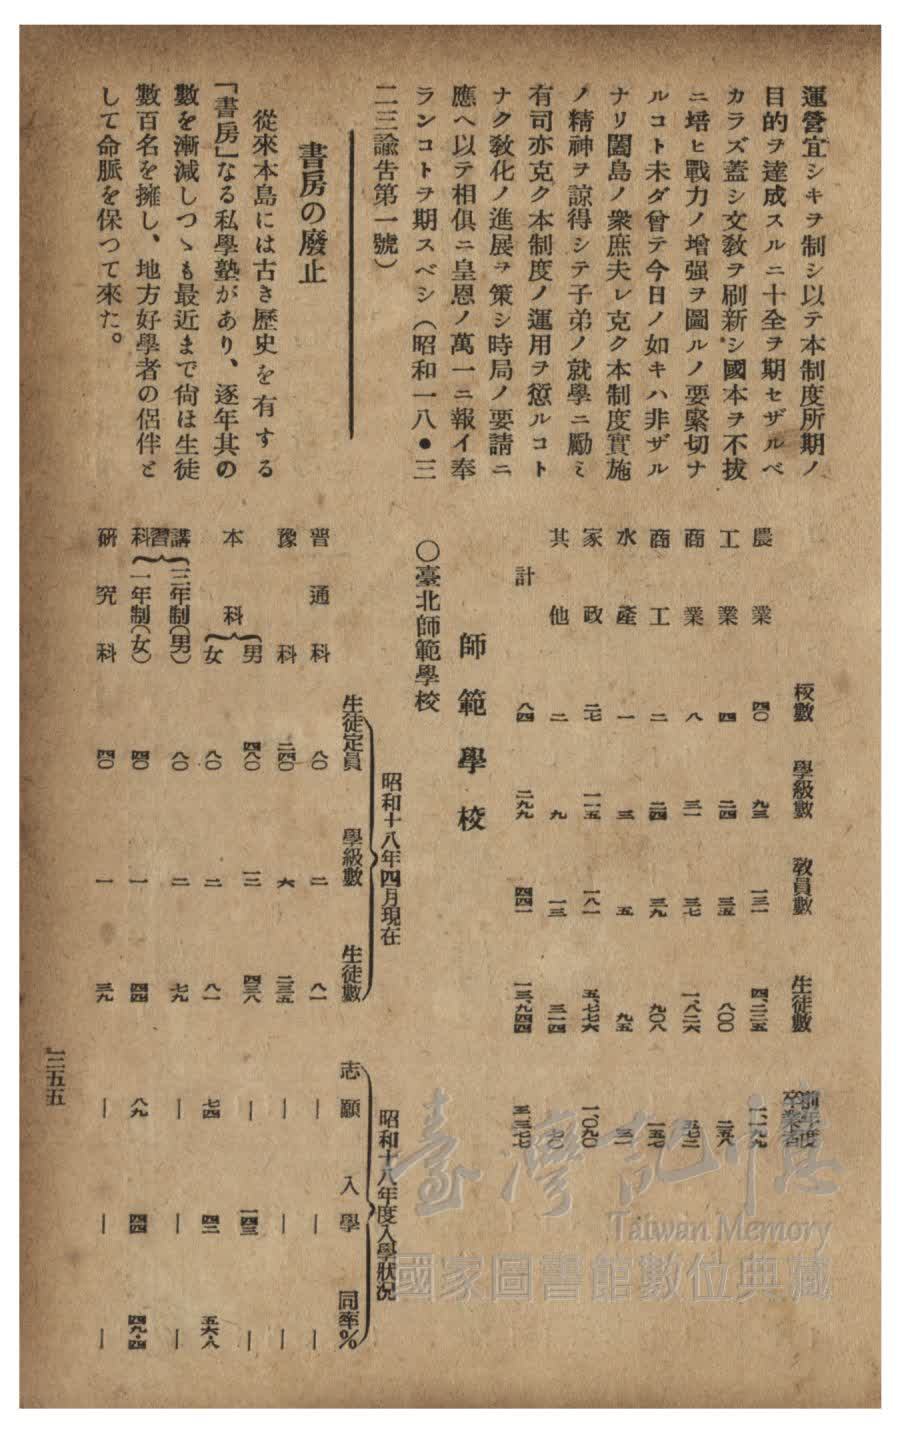 運營宜シキヲ制シ以テ本制度所期ノ
目的ヲ達成スルニ十全ヲ期セザルベ
カラズ蓋シ文敎ヲ刷新シ國本ヲ不拔
ニ培ヒ戰力ノ增强ヲ圖ルノ要緊切ナ
ルコト未ダ曾テ今日ノ如キハ非ザル
ナリ闔島ノ衆庶夫レ克ク本制度實施
ノ精神ヲ諒得シテ子弟ノ就學ニ勵ミ
有司亦克ク本制度ノ運用ヲ愆ルコト
ナク敎化ノ進展ヲ策シ時局ノ要請ニ
應ヘ以テ相俱ニ皇恩ノ萬一ニ報イ奉
ランコトヲ期スベシ（昭和一八・三
二三諭吿第一號）
書房の廢止
從來本島には古き歷史を有する
「書房」なる私學塾があり、逐年其の
數を漸減しつゝも最近まで尙ほ生徒
數百名を擁し、地方好學者の侶伴と
して命脈を保つて來た。
校數 學級數 敎員數 生徒數 前年度卒業者
農業 四〇 九三 一三一 四、二二五 一、一九九
工業 四 二四 三五 八〇〇 二五八
商業 八 三一 三七 一、八二六 五七二
商工 二 二四 三九 九〇八 一五七
水產 一 三 五 九五 三一
家政 二七 一一五 一八一 五、七七六 一、〇九〇
其他 二 九 一三 三一四 七〇
計 八四 二九九 四四一 一三、九四四 三、三七七
師範學校
〇臺北師範學校
昭和十八年四月現在 昭和十八年度入學狀況
生徒定員 學級數 生徒數 志願 入學 同率%
普通科 八〇 二 八一 — — —
豫科 二四〇 六 二三五 — — —
本科 男 四八〇 一二 四三八 — 一四三 —
女 八〇 二 八一 七四 四二 五六・八
講習科 二年制（男） 八〇 二 七九 — — —
一年制（女） 四〇 一 四四 八九 四四 四九・四
硏究科 四〇 一 三九 — — —
二五五
臺灣記憶
Taiwan Memory
國家圖書館數位典藏